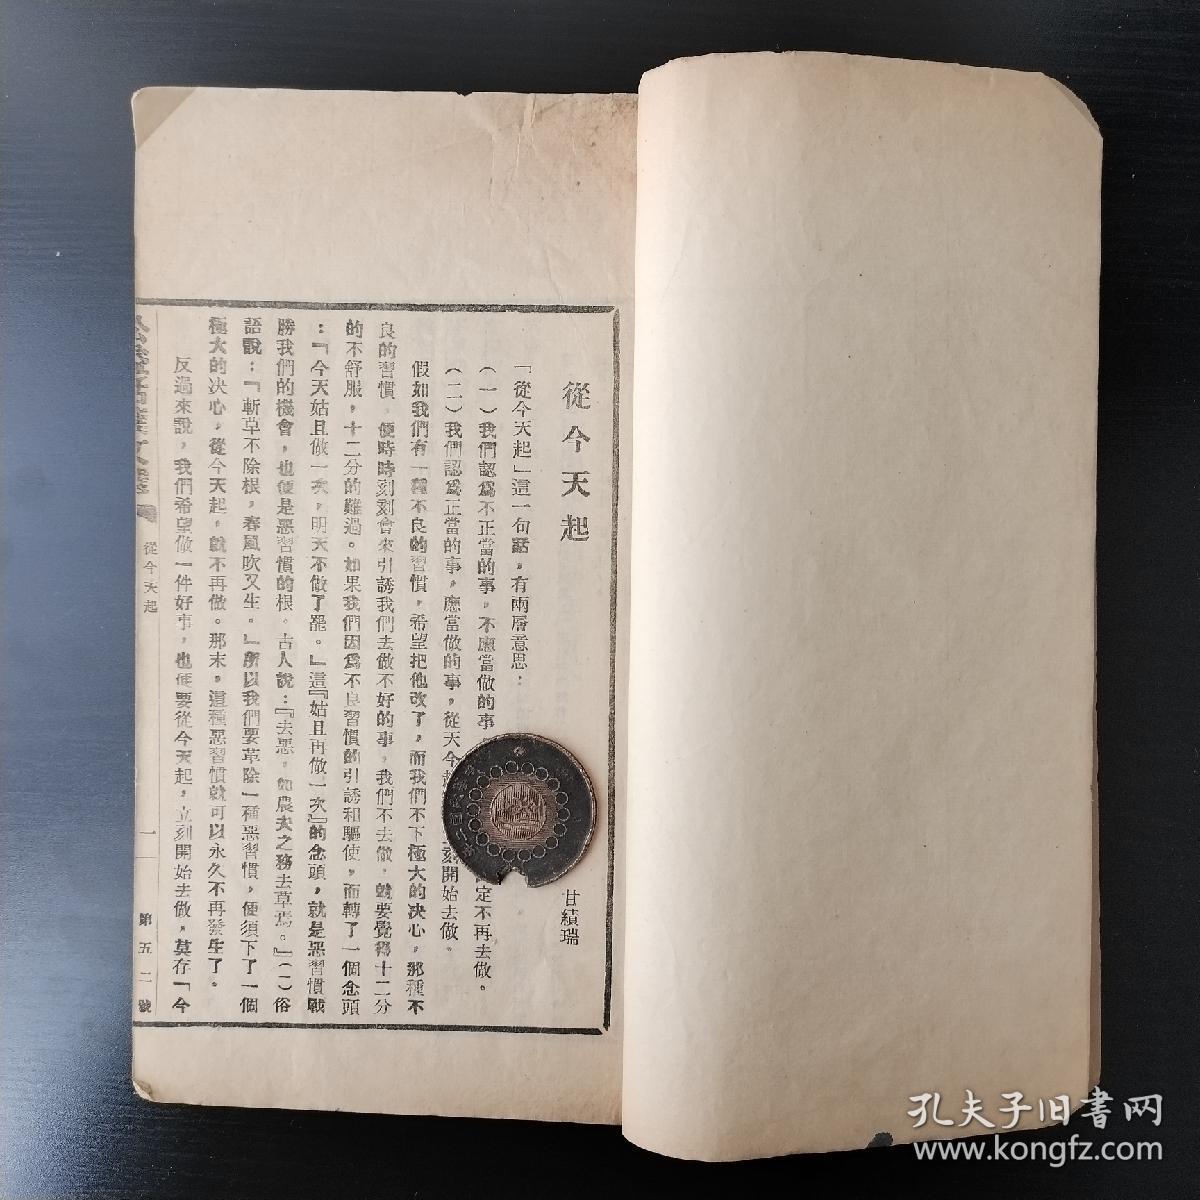 從今天起
甘績瑞
「從今天起」這一句話，有兩層意思：
（一）我們認爲不正當的事，不應當做的事 定不再去做。
（二）我們認爲正當的事，應當做的事，從天今 刻開始去做。
假如我們有一種不良的習慣，希望把他改了，而我們不下極大的决心，那種不
良的習慣，便時時刻刻會來引誘我們去做不好的事，我們不去做，就要覺得十二分
的不舒服，十二分的難過。如果我們因爲不良習慣的引誘和驅使，而轉了一個念頭
：「今天姑且做一次，明天不做了罷。」這『姑且再做一次』的念頭，就是惡習慣戰
勝我們的機會，也便是惡習慣的根。古人說：『去惡，如農夫之務去草焉。』（一）俗
語說：「斬草不除根，春風吹又生。」所以我們要革除一種惡習慣，便須下了一個
極大的决心，從今天起，就不再做。那末，這種惡習慣就可以永久不再發生了。
反過來說，我們希望做一件好事，也便要從今天起，立刻開始去做，莫存「今
從今天起
一
第五二號
孔夫子旧書网
www.kongfz.com